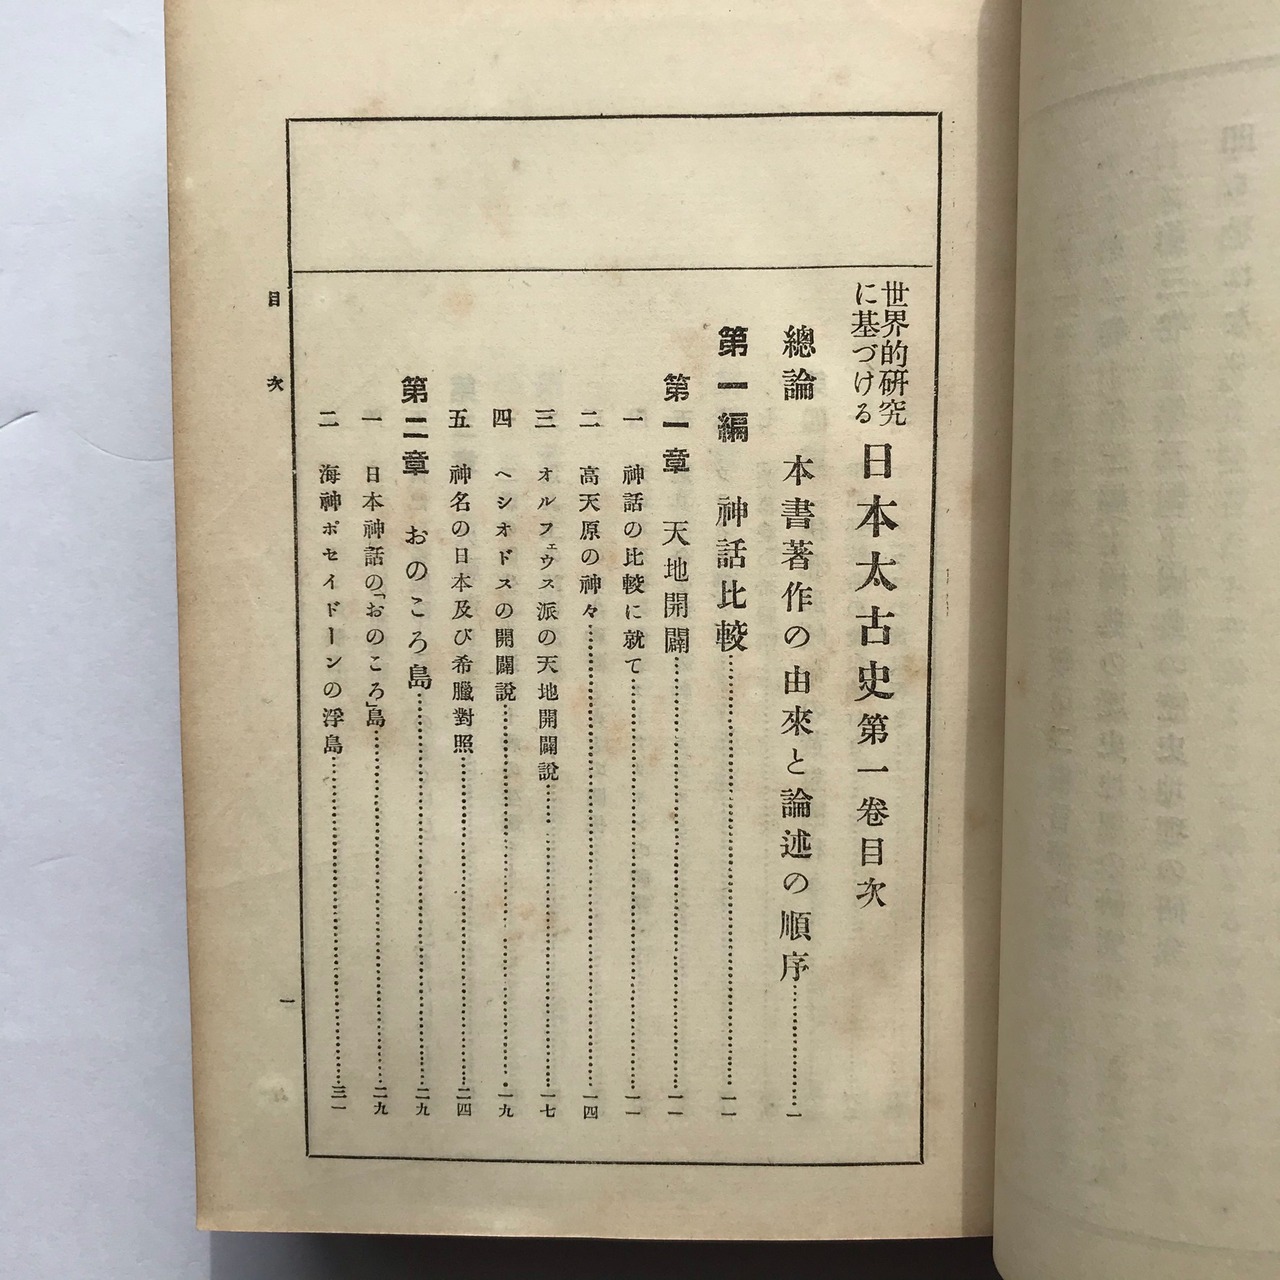 世界的研究に基づける 日本太古史第一卷目次
總論 本書著作の由來と論述の順序……一
第一編 神話比較……一一
第一章 天地開闢……一一
一 神話の比較に就て……一一
二 高天原の神々……一四
三 オルフェウス派の天地開闢說……一七
四 ヘシオドスの開闢說……一九
五 神名の日本及び希臘對照……二四
第二章 おのころ島……二九
一 日本神話の「おのころ」島……二九
二 海神ポセイドーンの浮島……三一
目次
一